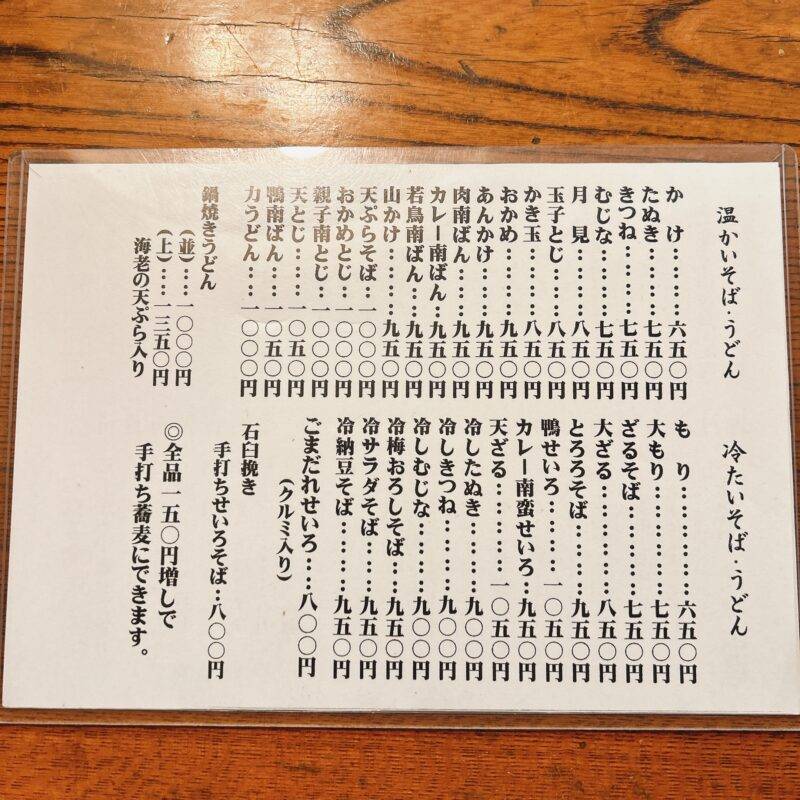 温かいそば・うどん
か け………六五〇円
たぬき………七五〇円
きつね………七五〇円
むじな………七五〇円
月 見………八五〇円
玉子とじ……八五〇円
かき玉………八五〇円
おかめ………九五〇円
あんかけ……九五〇円
肉南ばん……九五〇円
カレー南ばん…九五〇円
若鳥南ばん…九五〇円
山かけ………九五〇円
天ぷらそば…一〇〇〇円
おかめとじ…一〇〇〇円
親子南とじ…一〇〇〇円
天とじ……一〇五〇円
鴨南ばん…一〇五〇円
力うどん…一〇〇〇円
鍋焼きうどん
(並)……一〇〇〇円
(上)……一三五〇円
海老の天ぷら入り
冷たいそば・うどん
も り…………六五〇円
大もり…………七五〇円
ざるそば………七五〇円
大ざる…………八五〇円
とろろそば……九五〇円
鴨せいろ……一〇五〇円
カレー南蛮せいろ…九五〇円
天ざる………一〇五〇円
冷したぬき……九〇〇円
冷しきつね……九〇〇円
冷しむじな……九〇〇円
冷梅おろしそば…九五〇円
冷サラダそば…九五〇円
冷納豆そば……九五〇円
ごまだれせいろ…八〇〇円
(クルミ入り)
石臼挽き
手打ちせいろそば…八〇〇円
◎全品一五〇円増しで
手打ち蕎麦にできます。